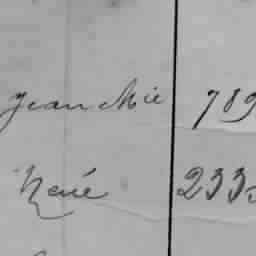 Jean Mie 789
René 233